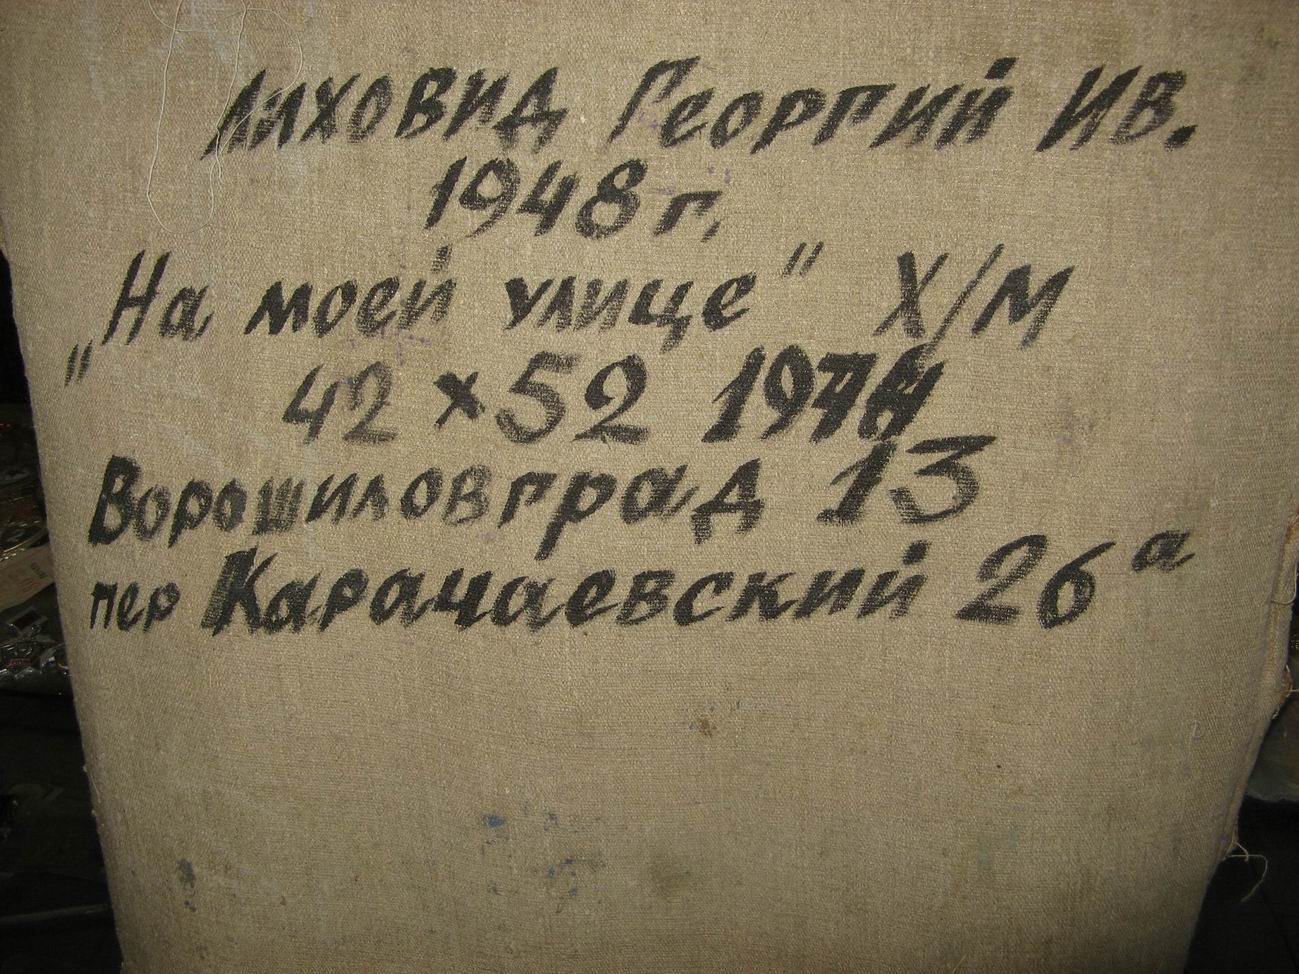 Лиховид Георгий Ив.
1948 г.
„На моей улице" Х/М
42 × 52
Ворошиловград 13
пер Карачаевский 26 а